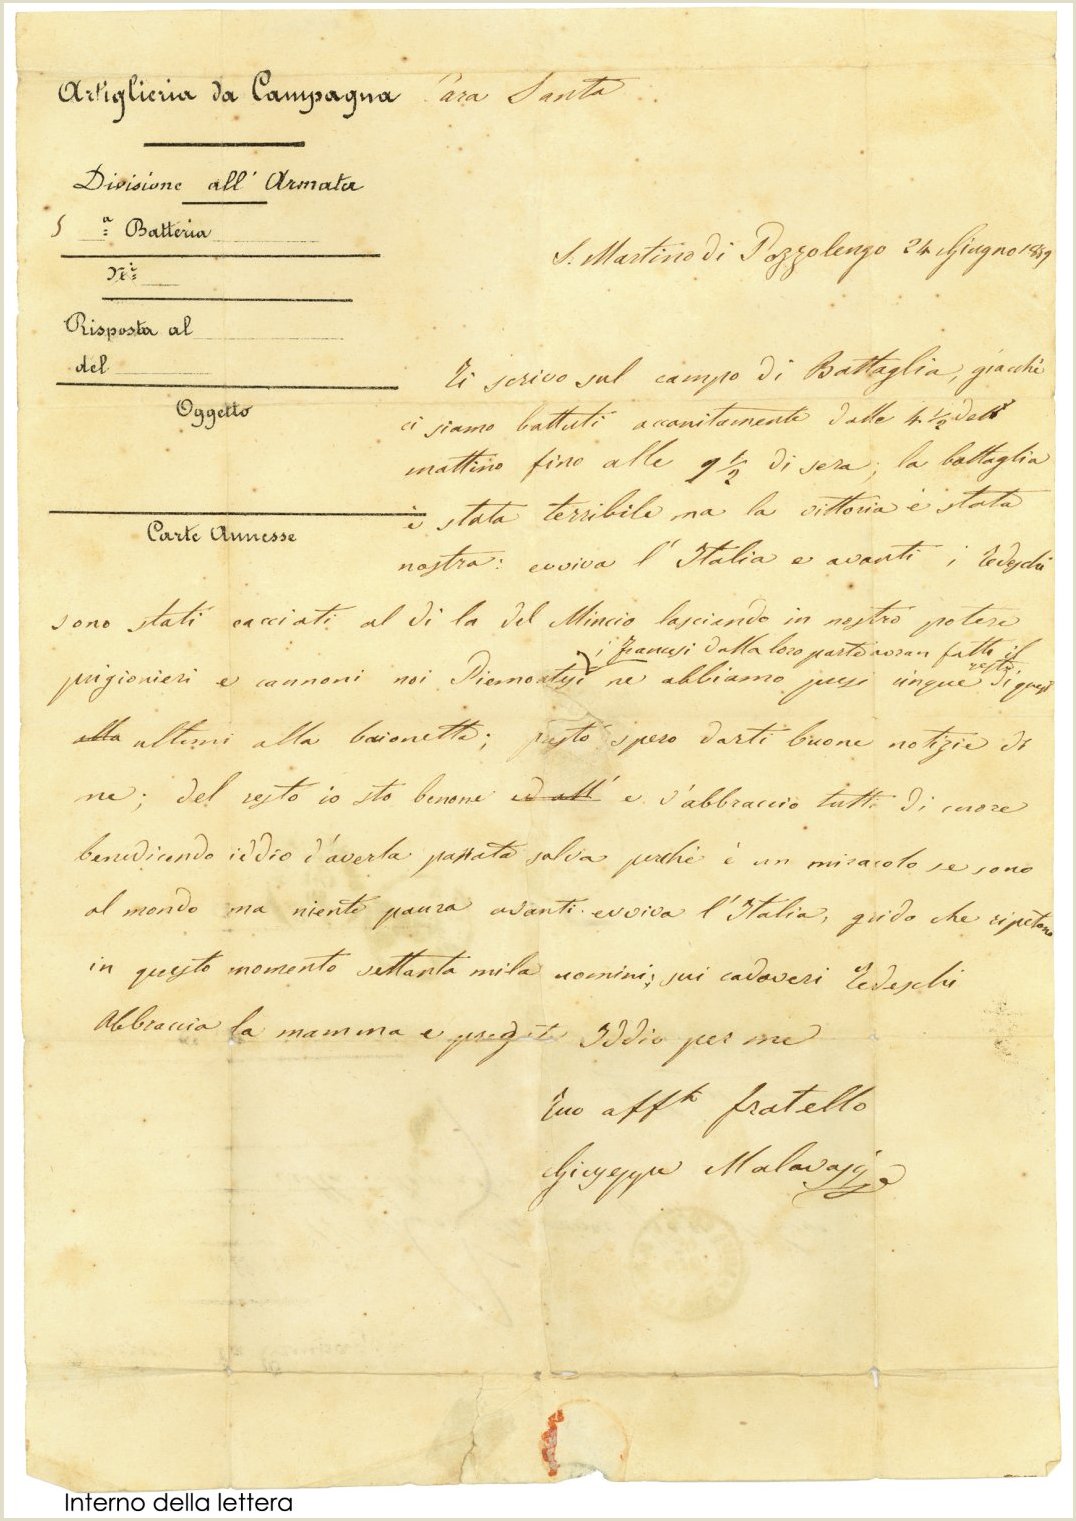 Artiglieria da Campagna
Cara Santa
Divisione all' Armata
5 a Batteria
N.
Risposta al
del
Oggetto
Carte Annesse
S. Martino di Pozzolengo 24 Giugno 1859
Ti scrivo sul campo di Battaglia, giacchè
ci siamo battuti accanitamente dalle 4 ½ del
mattino fino alle 9 ½ di sera; la battaglia
è stata terribile ma la vittoria è stata
nostra: evviva l'Italia e avanti i Tedeschi
sono stati cacciati al di la del Mincio lasciando in nostro potere
i Francesi dalla loro parte avran fatto il resto;
prigionieri e cannoni noi Piemontesi ne abbiamo presi cinque di questi
alla ultimi alla baionetta; presto spero darti buone notizie di
me; del resto io sto benone ed all' e v'abbraccio tutti di cuore
benedicendo iddio d'averla passata salva perchè è un miracolo se sono
al mondo ma niente paura avanti evviva l'Italia, grido che ripetono
in questo momento settanta mila uomini; sui cadaveri Tedeschi
Abbraccia la mamma e pregate Iddio per me
Tuo aff.to fratello
Giuseppe Malavasi
Interno della lettera